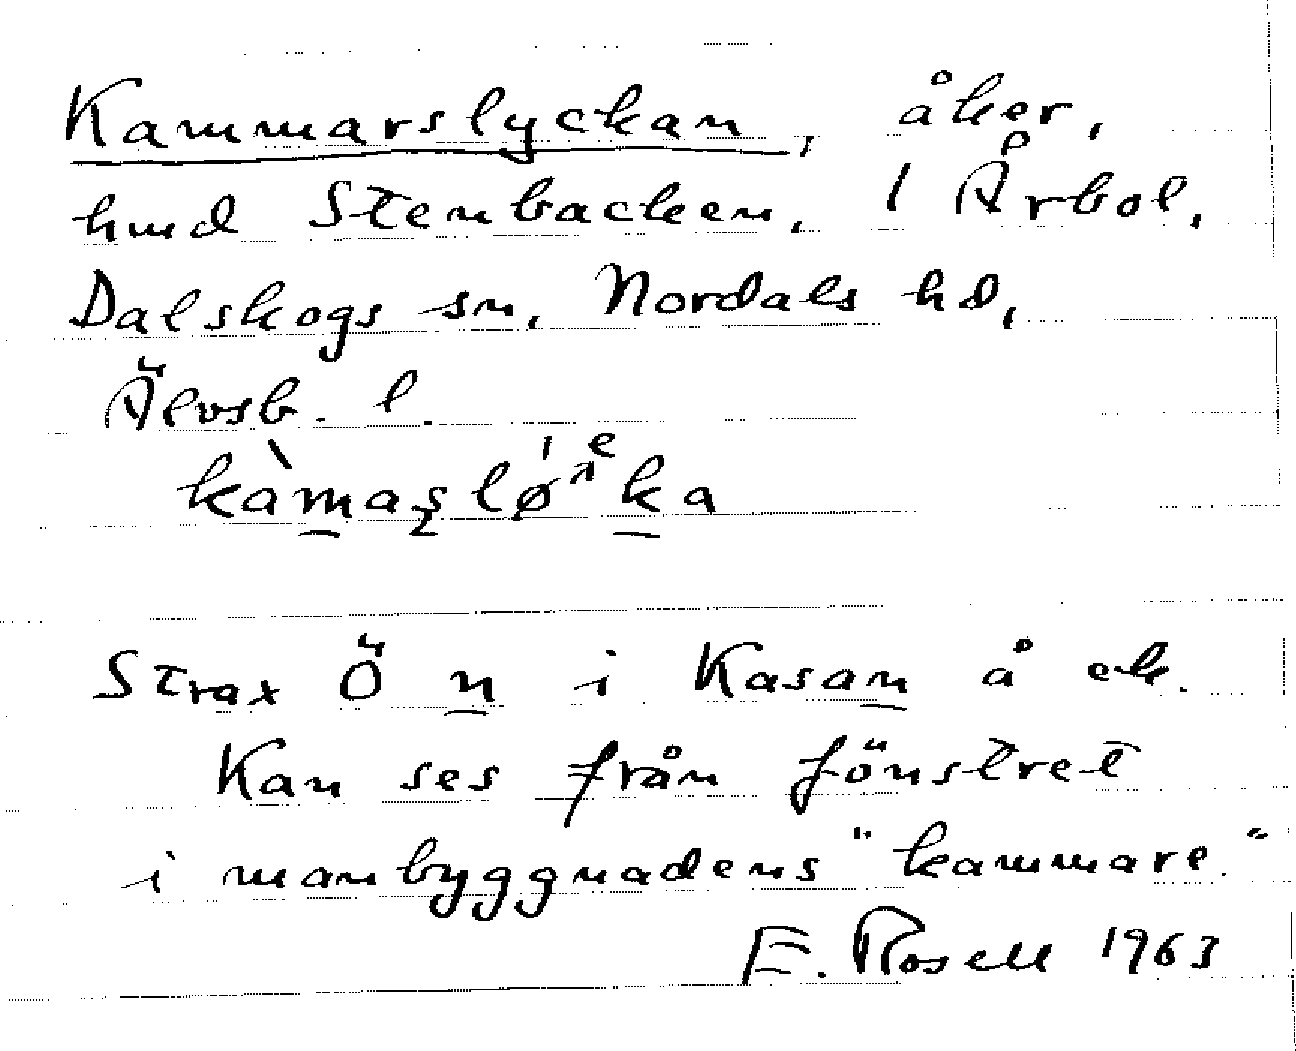 Kammarslyckan, åker,
hmd Stenbacken, 1 Årbol,
Dalskogs sn, Nordals hd,
Älvsb. l.
Strax Ö n i Kasan å ek.
Kan ses från fönstret
i manbyggnadens "kammare."
E. Rosell 1963